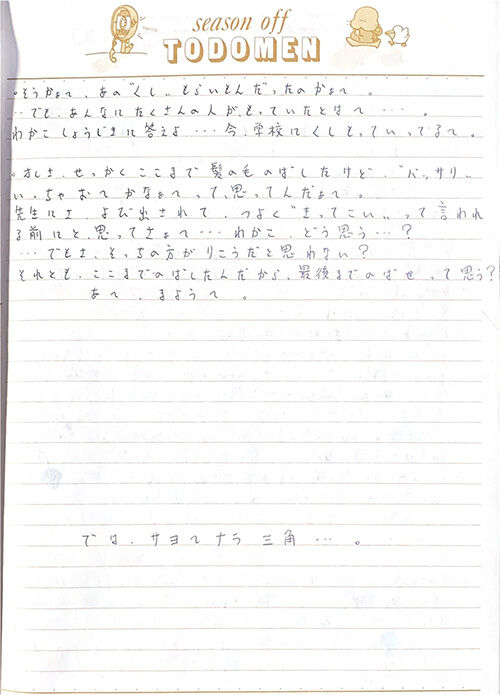 season off
TODOMEN
。そうかぁ〜、あの“くし„もらいもんだったのかぁ〜 。
…でも、あんなにたくさんの人が、もっていたとは〜 … 。
わかこ しょうじきに答えよ … 今、学校にくしもっていってる〜 。
。オレさ、せっかくここまで髪の毛のばしたけど、“バッサリ„
いっちゃお〜かなぁ〜って、思ってんだぁ〜 。
先生にさ、よび出されて、つよく“きってこい„って言われ
る前にと、思ってさぁ〜 … わかこ、どう思う … ?
… でもさ、そっちの方がりこうだと思わない?
それとも、ここまでのばしたんだから、最後までのばせって思う?
あ〜、まよう〜 。
では、サヨ〜ナラ 三角 … 。